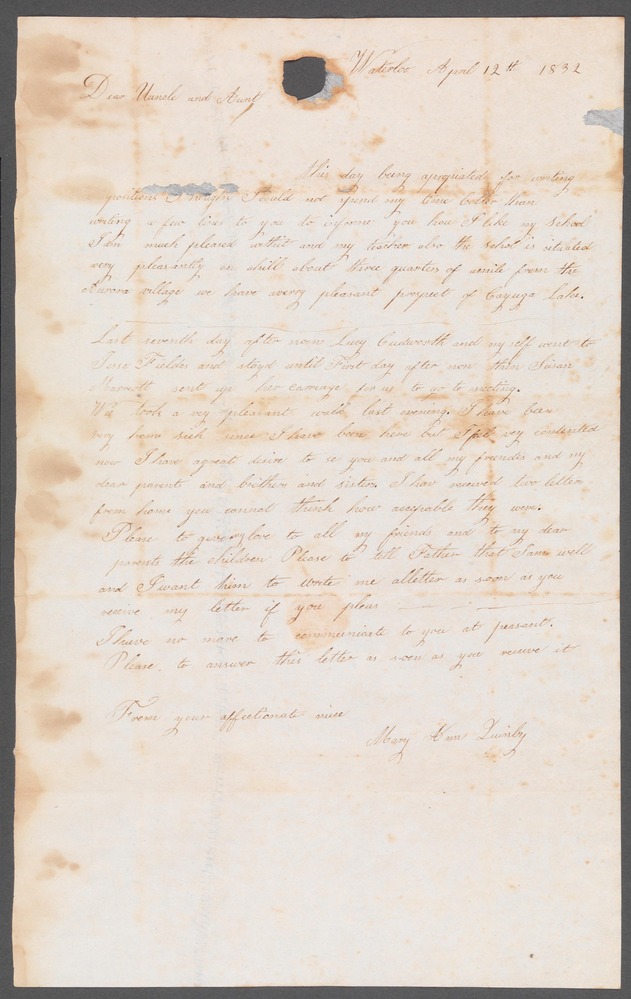 Waterloo April 12th 1832
Dear Uancle and Aunt
this day being apropriated for writing
I could not spend my time better than
writing a few lines to you to informe you how I like my School
I am much pleased with it and my teacher also the School is situated
very pleasantly on ahill about three quarters of amile from the
Aurora village we have avery pleasant prospect of Cayuga Lake.
Last seventh day after noon Lucy Cudworth and my self went to
Fields and stayd until First day after non then Susan
Marriott sent up her carriage for us to go to meeting.
We took a very pleasant walk last evening. I have been
very home sick since I have been here but I feel very contented
now I have agreat desire to se you and all my friendes and my
dear parents and brothers and sisters I hav received two letters
from home you cannot think how aseptable they were.
Please to give my love to all my friends and to my dear
parents the children Please to tell Father that I am well
and I want him to write me alletter as soon as you
receive my letter if you pleas
I have no more to communicate to you at preasant.
Please to answer this letter as soon as you receive it
From your affectionate niece
Mary Ann Quinby